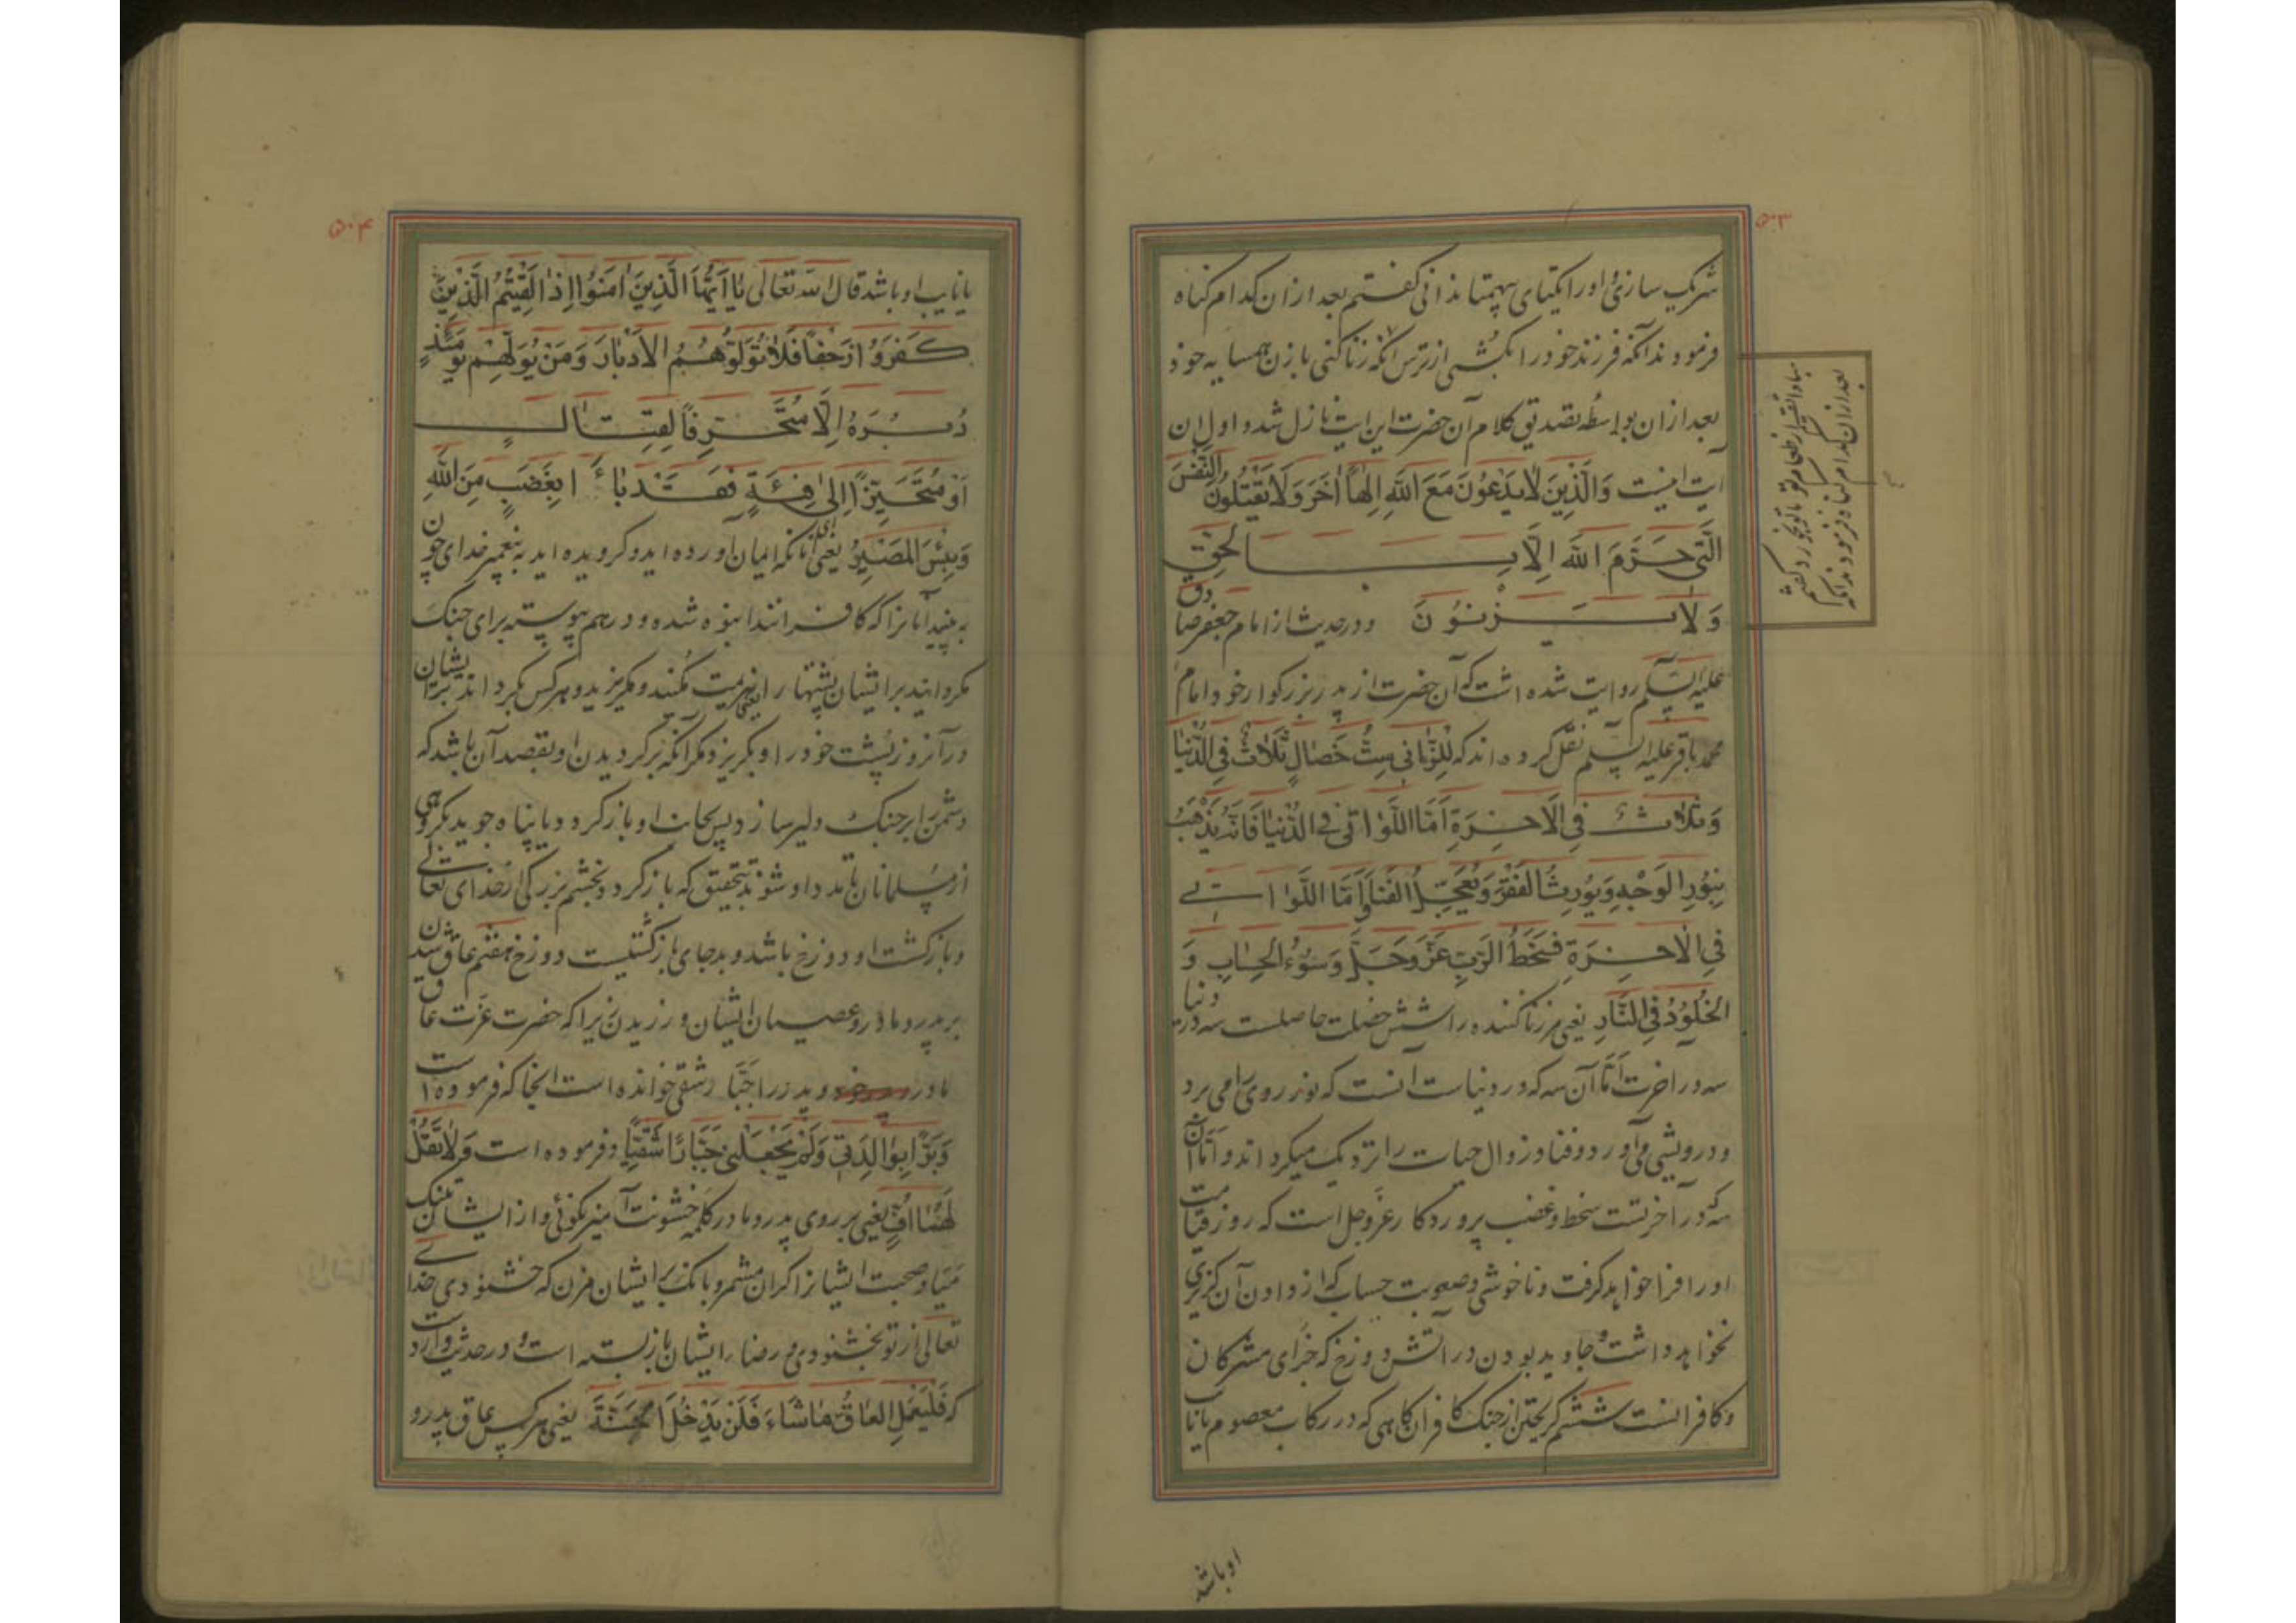 ۵۰۳
شریک سازی و او را یکتای بیهمتا ندانی گفتم بعد از ان کدام گناه
فرمودند آنکه فرزند خود را بکشی از ترس آنکه زنا کنی با زن همسایه خود
بعد از ان بواسطه تصدیق کلام آن حضرت این ایت نازل شد و اول ان
آیت اینست وَالَّذِینَ لَا یَدْعُونَ مَعَ اللهِ اِلٰهاً اٰخَرَ وَلَا یَقْتُلُونَ النَّفْسَ
الَّتِی حَرَّمَ اللهُ اِلَّا بِالْحَقِّ
وَلَا یَزْنُونَ و در حدیث از امام جعفر صادق
علیه السلم روایت شده است که آن حضرت از پدر بزرگوار خود امام
محمد باقر علیه السلم نقل کرده اند که لِلزَّانِی سِتُّ خِصَالٍ ثَلَاثٌ فِی الدُّنْیَا
وَثَلَاثٌ فِی الْاٰخِرَةِ اَمَّا اللَّوَاتِی فِی الدُّنْیَا فَاِنَّهُ یَذْهَبُ
بِنُورِ الْوَجْهِ وَیُورِثُ الْفَقْرَ وَیُعَجِّلُ الْفَنَاءَ وَاَمَّا اللَّوَاتِی
فِی الْاٰخِرَةِ فَسَخَطُ الرَّبِّ عَزَّ وَجَلَّ وَسُوءُ الْحِسَابِ وَ
الْخُلُودُ فِی النَّارِ یعنی مر زنا کننده را شش خصلت حاصلست سه در دنیا
سه در اخرت اَمّا آن سه که در دنیاست آنست که نور روی را می برد
و درویشی می آورد و فنا و زوال حیات را نزدیک میگرداند و اَمّا آن
سه که در آخرتست سخط و غضب پروردگار عز و جل است که روز قیامت
او را فرا خواهد گرفت و ناخوشی و صعوبت حساب که از دادن آن گزیری
نخواهد داشت و جاوید بودن در آتش دوزخ که جزای مشرکان
و کافرانست ششم گریختن از جنک کافران گاهی که در رکاب معصوم یا نایب
او باشد
بعد از ان کدام گناه فرمودند آنکه
مبادا لقمه از طعام تو با تو بخورد گفتم
۵۰۴
یا نایب او باشد قال الله تعالی یَا اَیُّهَا الَّذِینَ اٰمَنُوا اِذَا لَقِیتُمُ الَّذِینَ
کَفَرُوا زَحْفاً فَلَا تُوَلُّوهُمُ الْاَدْبَارَ وَمَنْ یُوَلِّهِمْ یَوْمَئِذٍ
دُبُرَهُ اِلَّا مُتَحَرِّفاً لِقِتَالٍ
اَوْ مُتَحَیِّزاً اِلٰی فِئَةٍ فَقَدْ بَاءَ بِغَضَبٍ مِنَ اللهِ
وَبِئْسَ الْمَصِیرُ یعنی ای آنانکه ایمان آورده اید و گرویده اید به پیغمبر خدای چون
به بینید آنانرا که کافرانند انبوه شده و درهم پیوسته برای جنک
مگردانید بر ایشان پشتها را یعنی هزیمت مکنید و مگریزید و هر کس بگرداند بر ایشان
در آنروز پشت خود را و بگریزد مگر آنکه برگردیدن او بقصد آن باشد که
دشمن را بر جنک دلیر سازد پس بجانب او باز گردد و یا پناه جوید بگروهی
از مسلمانان تا مدد او شوند بتحقیق که باز گردد بخشم بزرگی از خدای تعالی
و بازگشت او دوزخ باشد و بد جای بازگشتیست دوزخ هفتم عاق شدن
بر پدر و مادر و عصیان ایشان ورزیدن زیرا که حضرت عزت عاق
مادر و پدر را جبّار شقی خوانده است انجا که فرموده است
وَبَرّاً بِوَالِدَتِی وَلَمْ یَجْعَلْنِی جَبَّاراً شَقِیّاً و فرموده است وَلَا تَقُلْ
لَهُمَا اُفٍّ یعنی بر روی پدر و مادر کلمه خشونت آمیز نگوئی و از ایشان
میا و صحبت ایشانرا گران مشمر و بانک بر ایشان مزن که خشنودی خدای
تعالی از تو بخشنودی و رضای ایشان باز بسته است و در حدیث وارد است
که فَلْیَعْمَلِ الْعَاقُّ مَا شَاءَ فَلَنْ یَدْخُلَ الْجَنَّةَ یعنی هر کس عاق پدر و